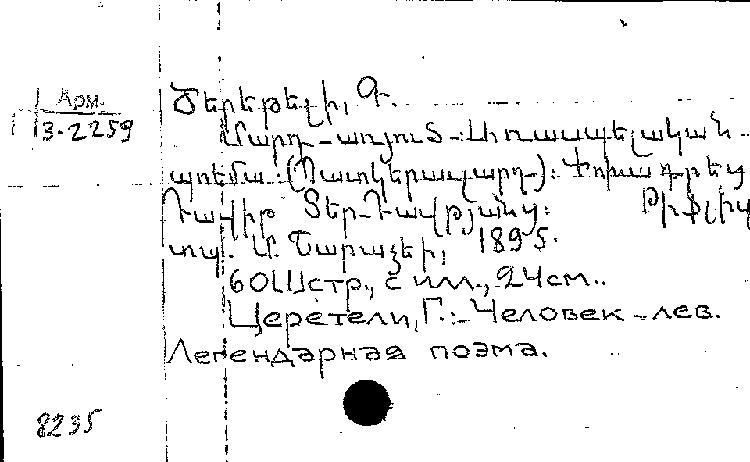 Арм.
3-2259
Ծերեթելի, Գ.
Մարդ-առյուծ. Առասպելական
պոեմա. (Պատկերազարդ): Փոխադրեց
Դավիթ Տեր-Դավթյանց: Թիֆլիս
տպ. Մ. Շարաձեի, 1895.
60 стр., с илл., 24см..
Церетели, Г.: Человек-лев.
Легендарная поэма.
8235